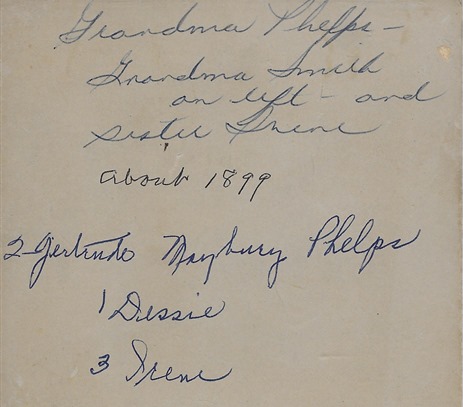 Grandma Phelps -
Grandma Smith
on left - and
sister Irene
about 1899
2-Gertrude Maybury Phelps
1 Dessie
3 Irene